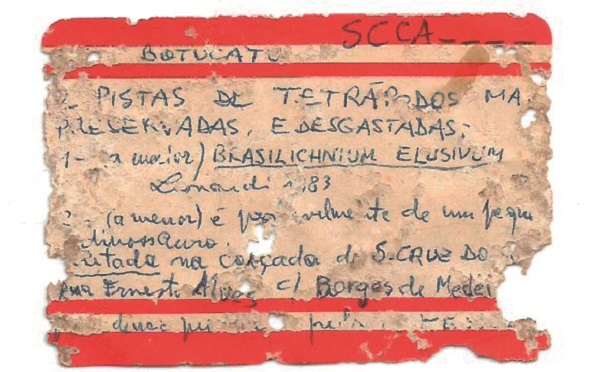 SCCA----
BOTUCATU
PISTAS DE TETRÁPODOS MA
RESERVADAS, E DESGASTADAS;
1- (a maior) BRASILICHNIUM ELUSIVUM
Leonardi 1983
2- (a menor) é de um pequ
dinossauro.
tada na calçada de S. CRUZ DO
rua Ernesto Alves c/ Borges de Medei